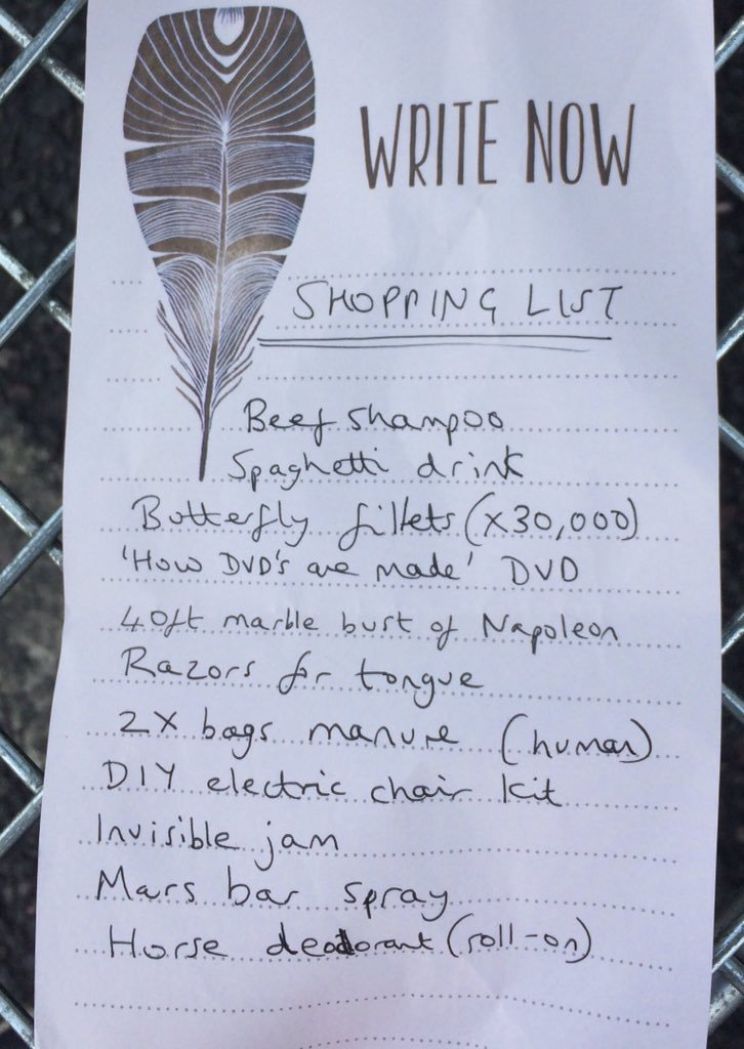 WRITE NOW
SHOPPING LIST
Beef shampoo
Spaghetti drink
Butterfly fillets (x30,000)
'How DVD's are made' DVD
40ft marble bust of Napoleon
Razors for tongue
2X bags manure (human)
DIY electric chair kit
Invisible jam
Mars bar spray
Horse deodorant (roll-on)